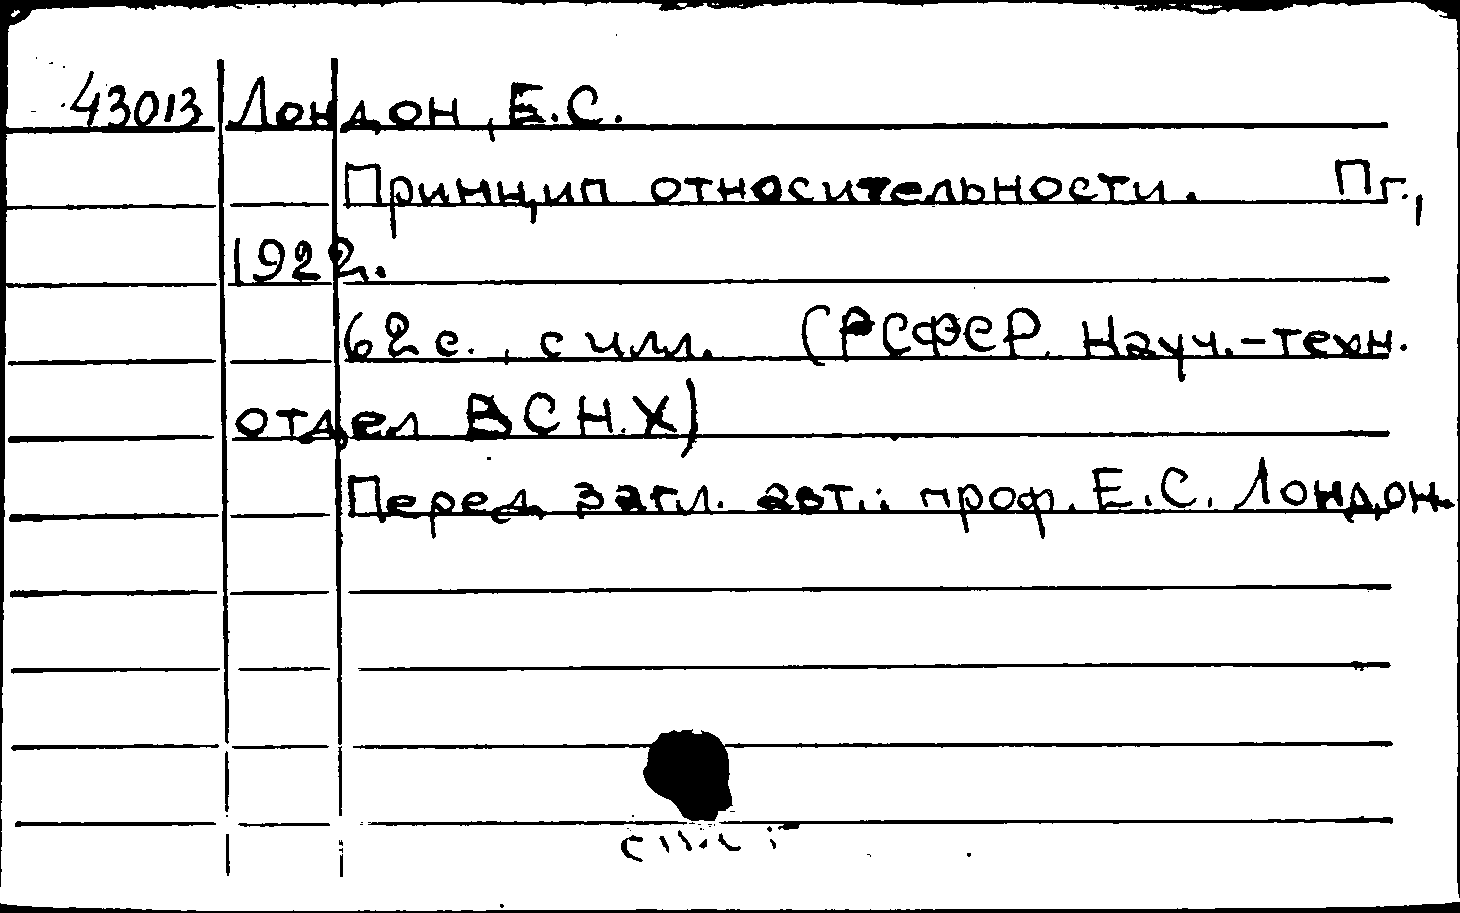 43013 Лондон, Е.С.
Принцип относительности. Пг.,
1922.
62 с., с илл. (РСФСР. Науч.-техн.
отдел ВСНХ)
Перед загл. авт.: проф. Е.С. Лондон.